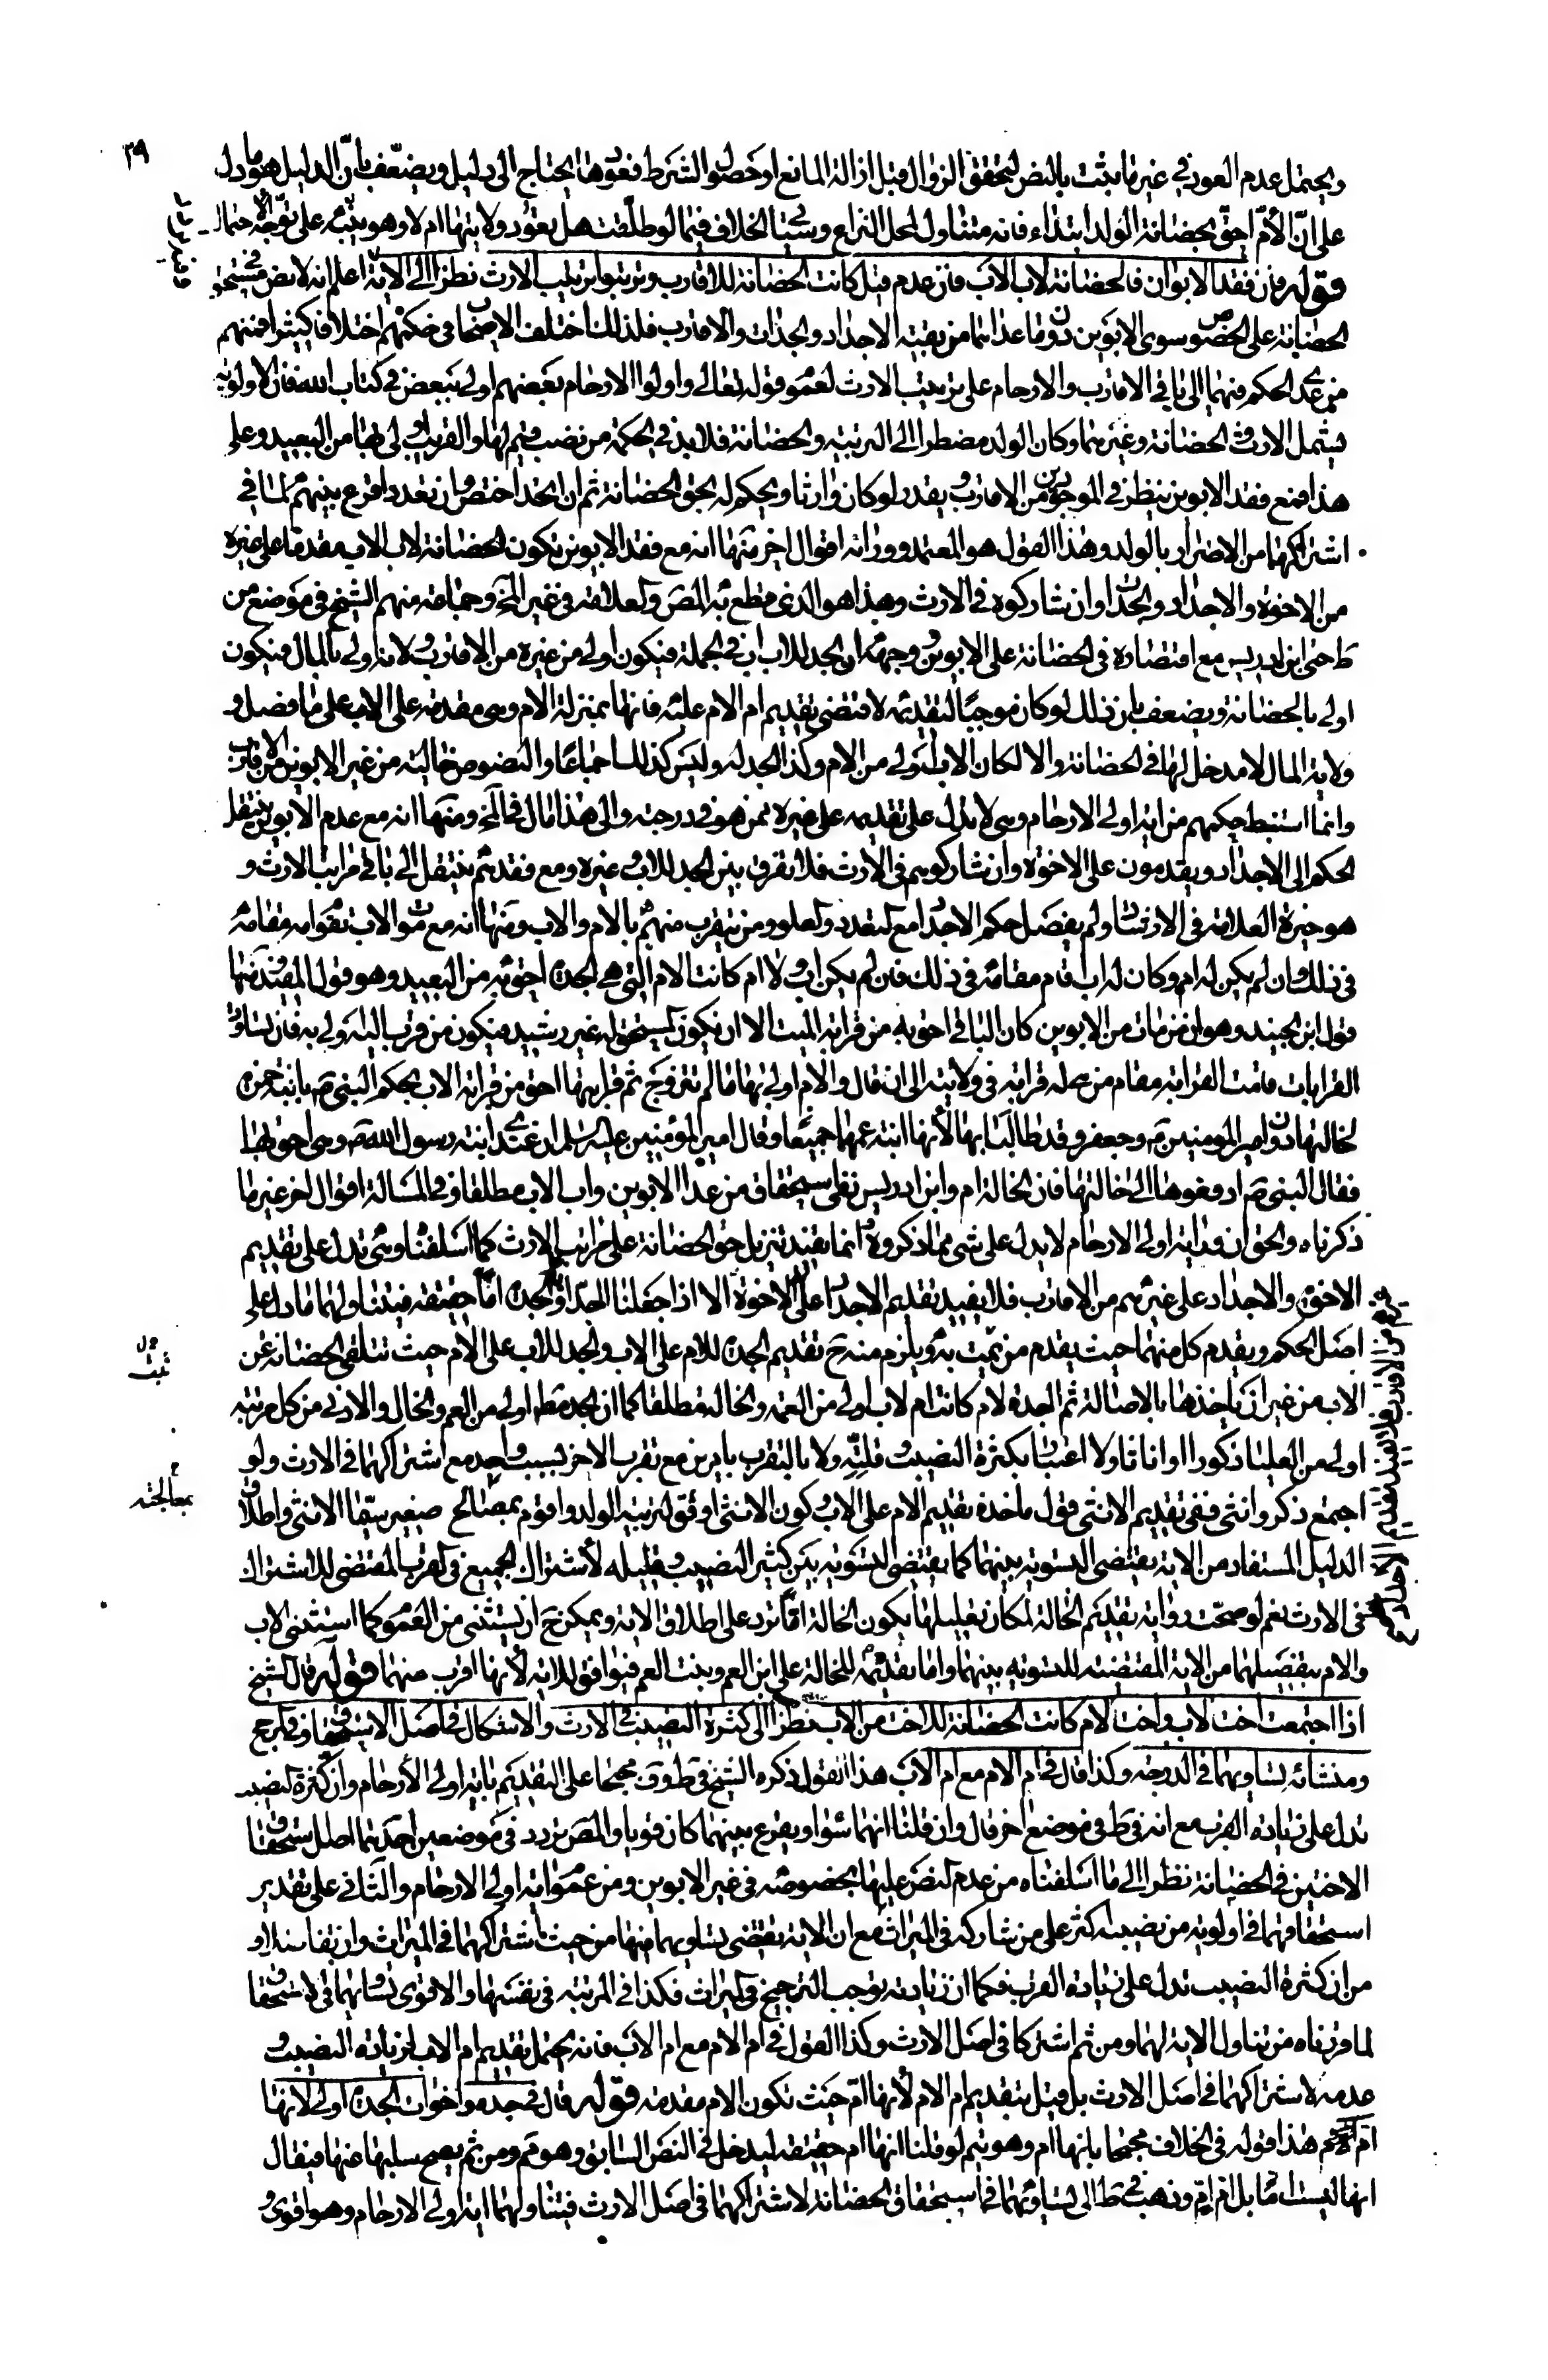 ٣٩
ويحتمل عدم العود في غير ما يثبت بالنص لتحقق الزوال قبل ازالة المانع او حصول الشرط فعودها يحتاج الى دليل ويضعف بان الدليل هو ما دل
على ان الأم احق بحضانة الولد ابتداء فانه متناول لمحل النزاع وسيأتي الخلاف فيما لو طلقت هل يعود ولايتها ام لا وهو على توجه الاحتمال
قوله فان فقد الابوان فالحضانة لاب الاب فان عدم قيل كانت الحضانة للاقارب وترتبوا ترتيب الارث نظرا الى الاية اعلم انه لا نص في مستحق
الحضانة على الخصوص سوى الابوين دون ما عداهما من بقية الاجداد والجدات والاقارب فلذلك اختلف الاصحاب في حكمهم اختلافا كثيرا فمنهم
من عدى الحكم فيها الى باقي الاقارب والارحام على ترتيب الارث لعموم قوله تعالى واولوا الارحام بعضهم اولى ببعض في كتاب الله فان الاولوية
يشمل الارث والحضانة وغيرهما وكان الولد مضطرا الى التربية والحضانة فلا بد في الحكمة من نصب قيم لها والقريب اولى بها من البعيد وعلى
هذا فمع فقد الابوين ينظر في الموجودين من الاقارب ويقدر لو كان وارثا ويحكم له بحق الحضانة ثم ان اتحد اختص وان تعدد اقرع بينهم لما في
اشتراكها من الاضرار بالولد وهذا القول هو المعتمد ووراءه اقوال اخر منها انه مع فقد الابوين تكون الحضانة لاب الاب مقدما على غيره
من الاخوة والاجداد والجدات وان شاركوه في الارث وهذا هو الذي قطع به المص والعلامة في غير المخ وجماعة منهم الشيخ في موضع من
ط حتى ابن ادريس مع اقتصاره في الحضانة على الابوين ووجهه ان الجد للاب اب في الجملة فيكون اولى من غيره من الاقارب ولانه اولى بالمال فيكون
اولى بالحضانة ويضعف بان ذلك لو كان موجبا لتقديمه لاقتضى تقديم ام الام عليه فانها بمنزلة الام وهي مقدمة على الاب على ما فصل و
ولاية المال لا مدخل لها في الحضانة والا لكان الاب اولى من الام وكذا الجد له وليس كذلك اجماعا والنصوص خالية من غير الابوين من الاقارب
وانما استنبط حكمهم من اية اولي الارحام وهي لا تدل على تقديمه على غيره ممن هو في درجته والى هذا مال في المخ ومنها انه مع عدم الابوين ينتقل
الحكم الى الاجداد ويقدمون على الاخوة وان شاركوهم في الارث فلا يفرق بين الجد للاب وغيره ومع فقدهم ينتقل الى باقي مراتب الارث و
هو خيرة العلامة في الارشاد ولم يفصل حكم الاجداد مع التعدد والعلو ومن يتقرب منهم بالام والاب ومنها انه مع موت الاب تقوم امه مقامه
في ذلك وان لم يكن له ام وكان له اب قام مقامه في ذلك فان لم يكن اب ولا ام كانت الام التي هي الجدة احق به من البعيد وهو قول المفيد ومنها
قول ابن الجنيد وهو ان من مات من الابوين كان الباقي احق به من قرابة الميت الا ان يكون المستحق له غير رشيد فيكون من قرب اليه اولى به فان تساوت
القرابات قامت القرابة مقام من هي له قرابة في ولايته الى ان قال والام اولى بها ما لم تتزوج ثم قرابتها احق من قرابة الاب لحكم النبي ص بابنة حمزة
لخالتها دون امير المؤمنين ع وجعفر وقد طالبا بها لأنها ابنة عمهما جميعا وقال امير المؤمنين عليه السلام ان عندي ابنة رسول الله ص وهي احق بها
فقال النبي ص ادفعوها الى خالتها فان الخالة ام وابن ادريس نفى استحقاق من عدا الابوين واب الاب مطلقا وفي المسالة اقوال اخر غير ما
ذكرناه والحق ان دلالة اولي الارحام لا يدل على شي مما ذكروه وانما يفيد تنزيل حق الحضانة على مراتب الارث كما اسلفناه وهي تدل على تقديم
الاخوة والاجداد على غيرهم من الاقارب فلا يفيد تقديم الاجداد على الاخوة الا اذا جعلنا الجد ابا والجدة اما حقيقة فيتناولهما ما دل على
اصل الحكم ويقدم كل منهما حيث يقدم من يمت به ويلزم منه ح تقديم الجدة للام على الاب والجد للاب على الام حيث تتلقى الحضانة عن
الاب من غير ان ياخذها بالاصالة ثم الجدة لام كانت ام لاب اولى من العمة والخالة مطلقا كما ان الجد مط اولى من العم والخال والادنى من كل مرتبة
اولى من العليا ذكورا او اناثا ولا اعتبار بكثرة النصيب وقلته ولا بالتقرب بابوين مع تقرب الاخر بسبب واحد مع اشتراكهما في الارث ولو
اجتمع ذكر وانثى ففي تقديم الانثى قول ماخذه تقديم الام على الاب وكون الانثى اوفق لتربية الولد واقوم بمصالح صغير سيما الانثى واطلاق
الدليل المستفاد من الاية يقتضي التسوية بينهما كما يقتضي التسوية بين كثير النصيب وقليله لأشتراك الجميع في القرب المقتضي للاشتراك
في الارث نعم لو صحت رواية تقديم الخالة لمكان تعليلها بكون الخالة اما ترد على اطلاق الاية ويمكن ح ان يستثنى من العموم كما استثني الاب
والام بتفصيلهما من الاية المقتضية للتسوية بينهما واما تقديمه للخالة على ابن العم وبنت العم فيوافق للاية لأنها اقرب منهما قوله قال الشيخ
اذا اجتمعت اخت لاب واخت لام كانت الحضانة للاخت من الاب نظرا الى كثرة النصيب في الارث والاشكال في اصل الاستحقاق وفي الترجيح
ومنشائه تساويهما في الدرجة وكذا قال في ام الام مع ام الاب هذا القول ذكره الشيخ في ط وف محتجا على التقديم باية اولي الأرحام وان كثرة النصيب
تدل على زيادة القرب مع انه في ط في موضع اخر قال وان قلنا انهما سواء ويقرع بينهما كان قويا والمص تردد في موضعين احدهما اصل استحقاق
الاختين في الحضانة نظرا الى ما اسلفناه من عدم النص عليها بخصوصه في غير الابوين ومن عموم اية اولي الارحام والثاني على تقدير
استحقاقهما في اولوية من نصيبه اكثر على من شاركه في الميراث مع ان الاية يقتضي تساويهما فيها من حيث اشتراكهما في الميراث وان تفاضلا و
من ان كثرة النصيب تدل على زيادة القرب فكما ان زيادته يوجب الترجيح في الميراث فكذا في المرتبة في نفسها والاقوى تساويهما في الاستحقاق
لما قررناه من تناول الاية لهما ومن ثم اشتركا في اصل الارث وكذا القول في ام الام مع ام الاب فانه يحتمل تقديم ام الاب لزيادة النصيب و
عدمه لاشتراكهما في اصل الارث بل قيل بتقديم ام الام لأنها ام حيث تكون الام مقدمة قوله قال في جدة واخوات الجدة اولى لأنها
ام هذا قوله في الخلاف محتجا بانها ام وهو يتم لو قلنا انها ام حقيقة ليدخل في النص السابق وهو م ومن ثم يصح سلبها عنها فيقال
انها ليست اما بل ام ام وذهب في ط الى تساويهما في استحقاق الحضانة لاشتراكهما في اصل الارث فيتناولهما اية اولي الارحام وهو اقوى و
بمعالجته